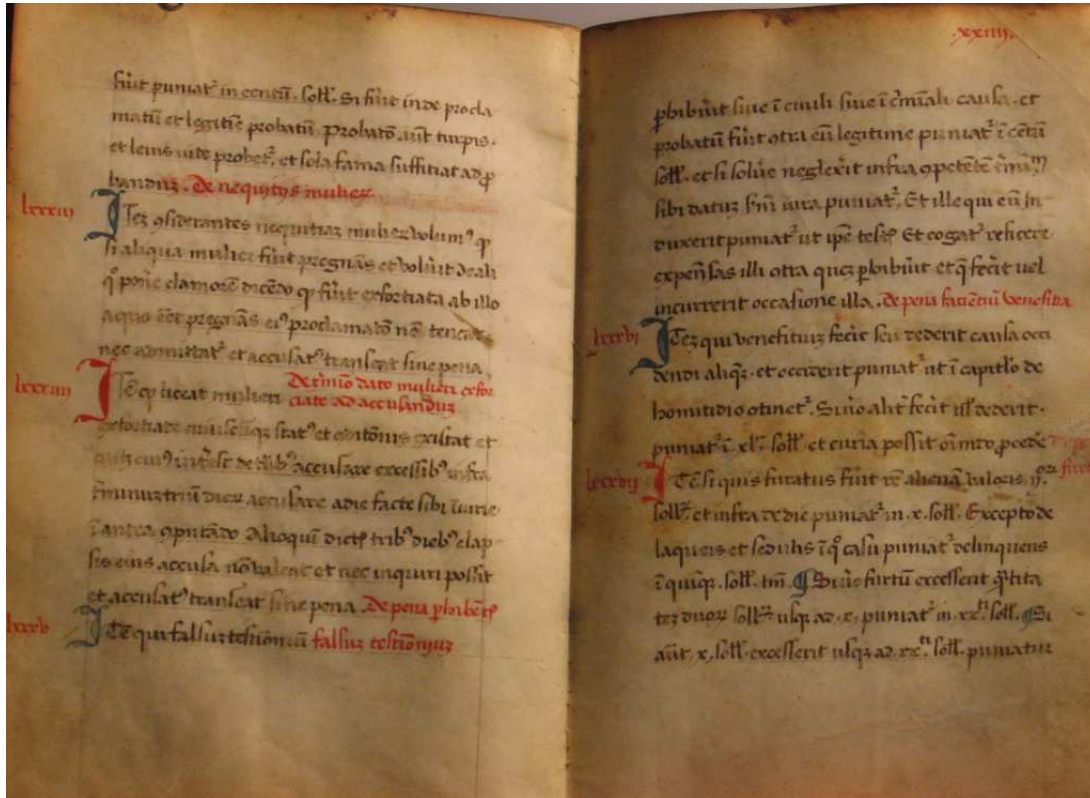 fu͛it puniat᷑ in centũ. soll̃. Si fu͛it inde procla
matũ et legittie probatũ. Probato. aũt turpis.
et leuis uite probet᷑. et sola fama suffitiat ad ꝓ
banduz. De nequitijs mulieꝝ
lxxxiii
ITez ꝯsiderantes nequitiaz mulieꝝ volumꝰ ꝙ
si aliqua mulier fu͛it pregnãs et volu͛it de ali
qͦ pon͛e clamorẽ dicẽdo ꝙ fu͛it exfortiata ab illo
a quo eẽt pregnãs eiꝰ proclamato nõ teneat
nec admittat᷑ et accusatꝰ transeat sine pena.
lxxxiiii
ITẽ ꝙ liceat mulieri De t͛mino dato mulieri exfor
ciate ad accusanduz
exfortiate cuiuscũqꝫ statꝰ et ꝯditionis existat et
accusare excessibꝰ infra
t͛minuz triũ dieꝝ accusare a die facte sibi iĩurie
ĩ antea ꝯputãdo Alioquĩ dictis tribꝰ diebꝰ elap
sis eius accusa nõ valeat et nec inquiri possit
et accusatꝰ transeat sine pena. De pena ꝑhibẽtis
lxxxv
ITẽ qui falsuz testimoniũ falsuz testimoniuz
.xxiiii.
ꝑhibu͛it siue ĩ ciuili siue ĩ c͛minali causa. et
probatũ fu͛it ꝯtra eũ legitime puniat᷑ ĩ cẽtũ
soll̃. et si solu͛e neglex͛it infra ꝯpetẽtẽ t͛minũ
sibi datuz sm̃ iura puniat᷑. Et ille qui eũ in
duxerit puniat᷑ ut ip̃e testis Et cogat᷑ reficere
expensas illi ꝯtra quez ꝑhibu͛it et q̃ fec͛it uel
incurrerit occasione illa. De pena facientiũ venefitia
lxxxvi
ITez qui venefitiuz fec͛it seu dederit causa occi
dendi aliqꝫ. et occiderit puniat᷑ ut ĩ capitl̃o de
homitidio ꝯtinet᷑. Si u͛o alit͛ fec͛it ul̃ dederit.
puniat᷑ ĩ .xl. soll̃. et curia possit oĩmo ꝓcede͛
lxxxvii
ITẽ si quis furatus fu͛it rẽ alienã valoris. ij. furt
soll̃. et infra de die puniat᷑ in .x. soll̃. Excepto de
laqueis et sedulis ĩ qͦ casu puniat᷑ delinquens
ĩ quiqꝫ. soll̃. tm̃. ¶ Si u͛o furtũ excesserit q̃tita
tez duoꝝ soll̃. usqꝫ ad .x. puniat᷑ in .xx. soll̃. ¶ Si
aũt .x. soll̃. excesserit usqꝫ ad .xx. soll̃. puniatur